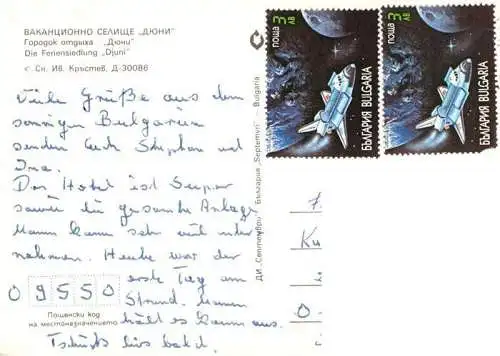 ВАКАНЦИОННО СЕЛИЩЕ „ДЮНИ"
Городок отдыха „Дюни"
Die Feriensiedlung „Djuni"
с Сн. Ив. Кръстев, Д-30086
Viele Grüße aus dem
sonnigen Bulgarien
senden Euch Stephan und
Ina.
Das Hotel ist Super
sowie die gesamte Anlage
Mann kann sehr viel unter
nehmen. Heute war der
erste Tag am
Strand. Mann
hält es kaum aus.
Tschüß bis bald
0 9550
Пощенски код
на местоназначението
ДИ „Септември" България „Septemvri" — Bulgaria
поща 3 лв
БЪЛГАРИЯ BULGARIA
поща 3 лв
БЪЛГАРИЯ BULGARIA
F.
Ku
O